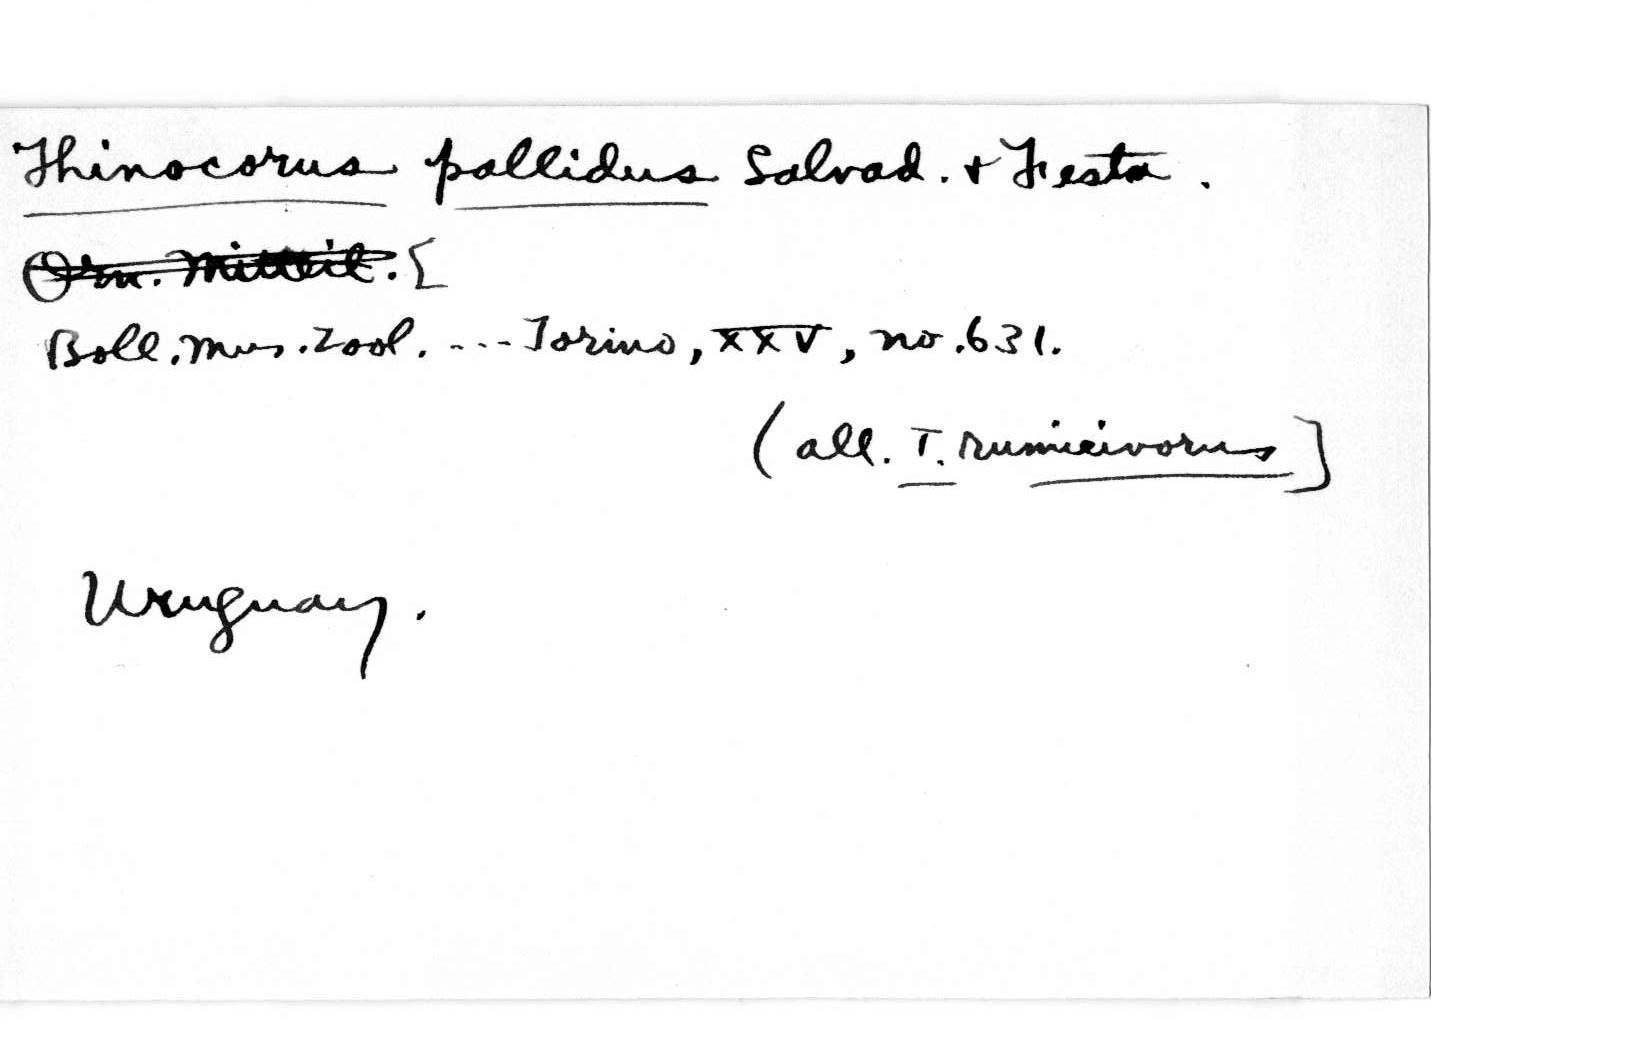 Thinocorus pallidus Salvad. & Festa.
Orn. Mitteil. [
Boll. Mus. Zool. ... Torino, XXV, no. 631.
(all. T. rumicivorus]
Uruguay.